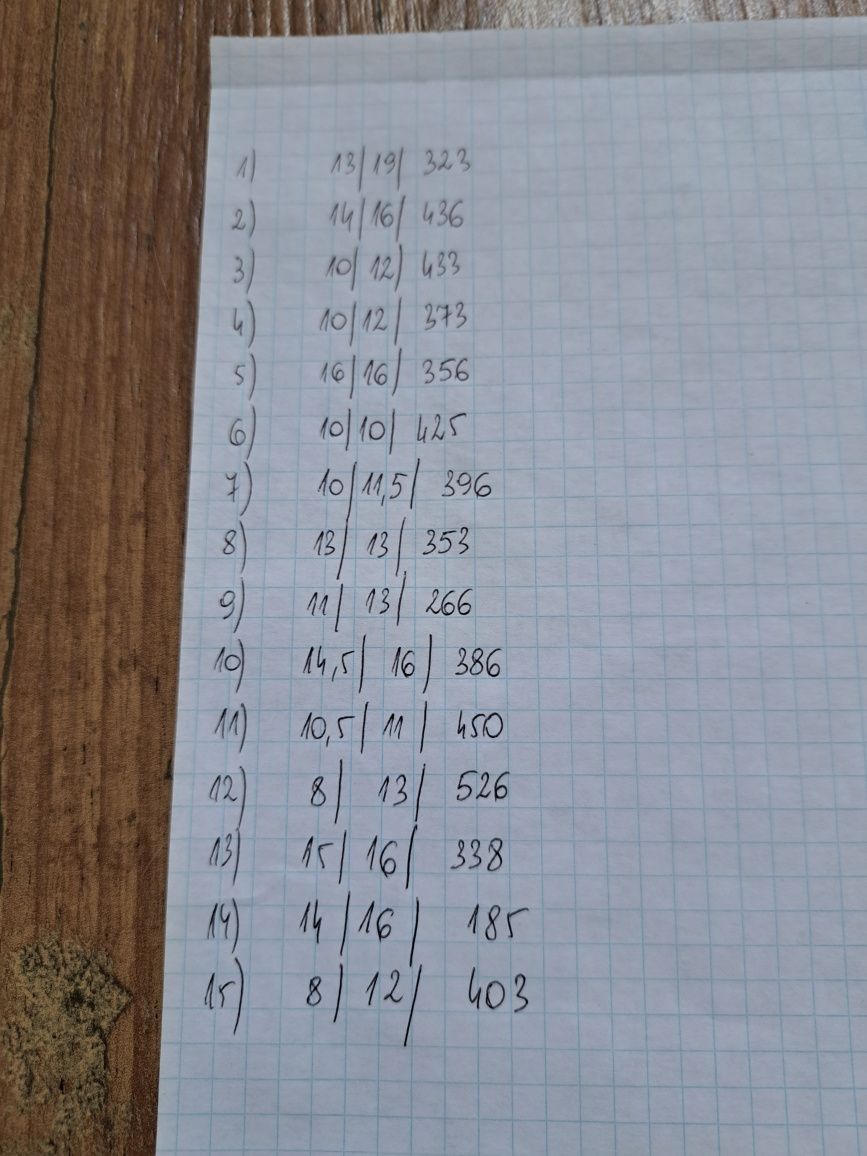 1) 13/19/ 323
2) 14/16/ 436
3) 10/12/ 433
4) 10/12/ 373
5) 16/16/ 356
6) 10/10/ 425
7) 10/11,5/ 396
8) 13/13/ 353
9) 11/13/ 266
10) 14,5/16/ 386
11) 10,5/11/ 450
12) 8/13/ 526
13) 15/16/ 338
14) 14/16/ 185
15) 8/12/ 403